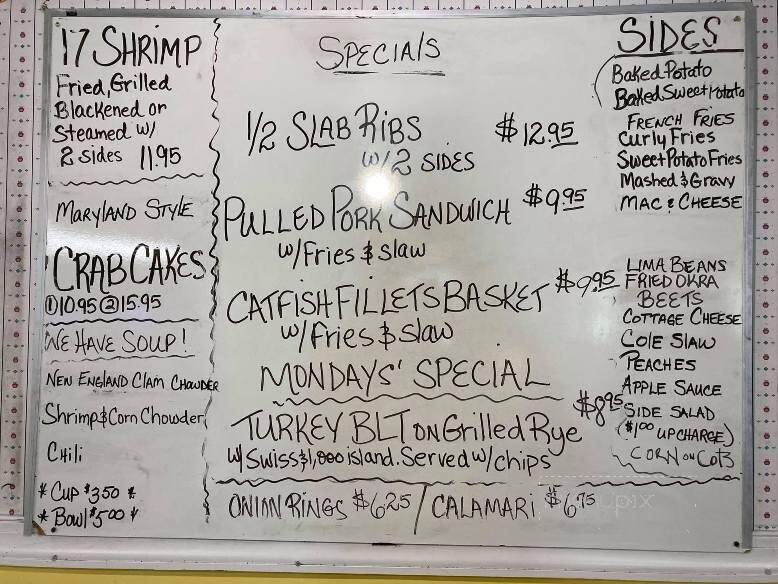 17 SHRIMP
Fried, Grilled
Blackened or
Steamed w/
2 sides 11.95
MARYLAND STYLE
CRAB CAKES
① 10.95 ② 15.95
WE HAVE SOUP!
NEW ENGLAND Clam CHOWDER
Shrimp & Corn Chowder
CHili
* Cup $3.50 *
* Bowl $5.00 *
SPECIAlS
1/2 SLAB RIBS $12.95
w/ 2 SIDES
PULLED PORK SANDWICH $9.95
w/ Fries & Slaw
CATFISH FILLETS BASKET $9.95
w/ fries & slaw
MONDAYS' SPECIAL
TURKEY BLT ON Grilled Rye $8.95
w/ Swiss & 1,000 island. Served w/ chips
ONION RINGS $6.25 / CALAMARI $6.75
SIDES
Baked Potato
Baked Sweet Potato
FRENCH FRIES
Curly Fries
Sweet Potato Fries
Mashed & Gravy
MAC & CHEESE
LIMA BEANS
FRIED OKRA
BEETS
COTTAGE CHEESE
COlE SlAW
PEACHES
APPLE SAUCE
SIDE SALAD
($1.00 UPCHARGE)
CORN ON COB